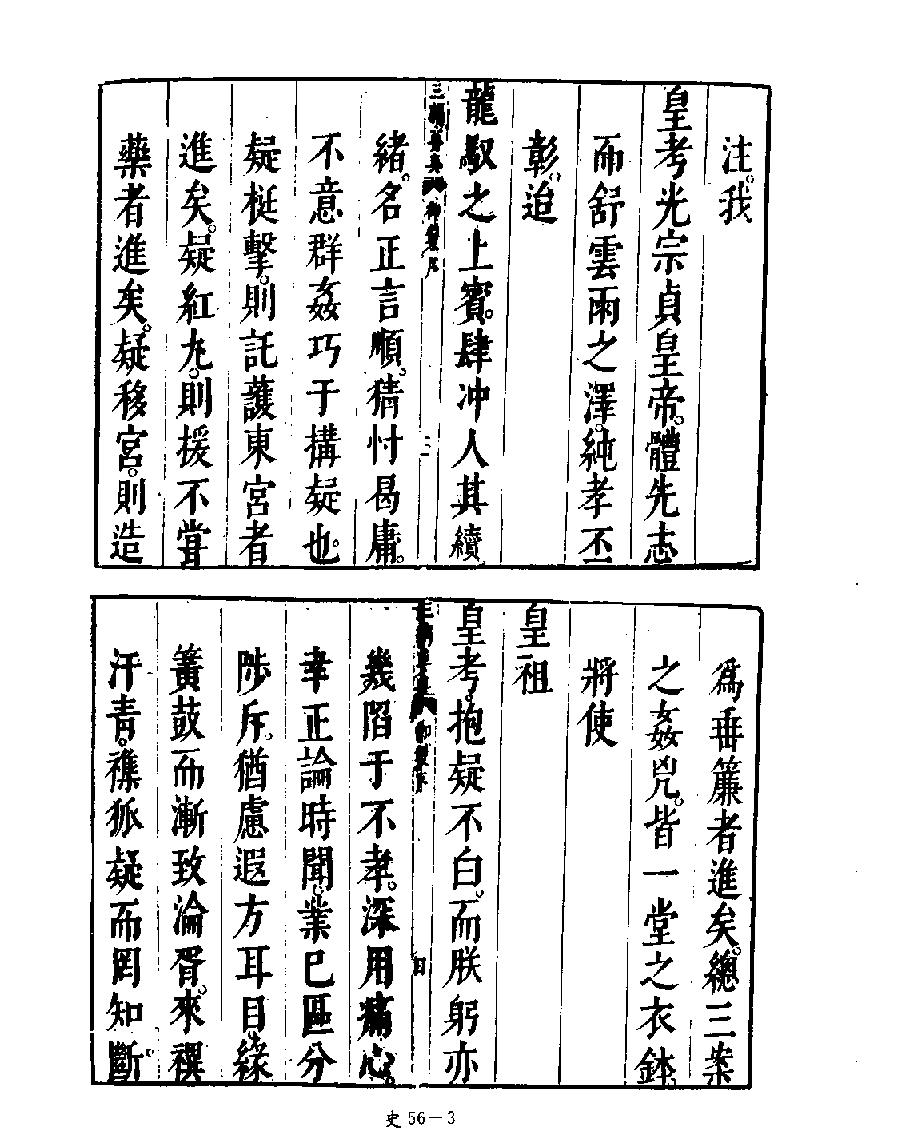 注我
皇考光宗貞皇帝體先志
而舒雲雨之澤純孝丕
彰迨
龍馭之上賓肆沖人其續
三朝要典 御製序
緒名正言順猜忖曷庸
不意群姦巧于搆疑也
疑梃擊則託護東宮者
進矣疑紅丸則援不嘗
藥者進矣疑移宮則造
為垂簾者進矣總三案
之姦兇皆一堂之衣鉢
將使
皇祖
皇考抱疑不白而朕躬亦
三朝要典 御製序
幾陷于不孝深用痛心
幸正論時聞業已區分
陟斥猶慮遐方耳目緣
簧鼓而漸致淪胥來禩
汗青襍狐疑而罔知斷
史 56－3